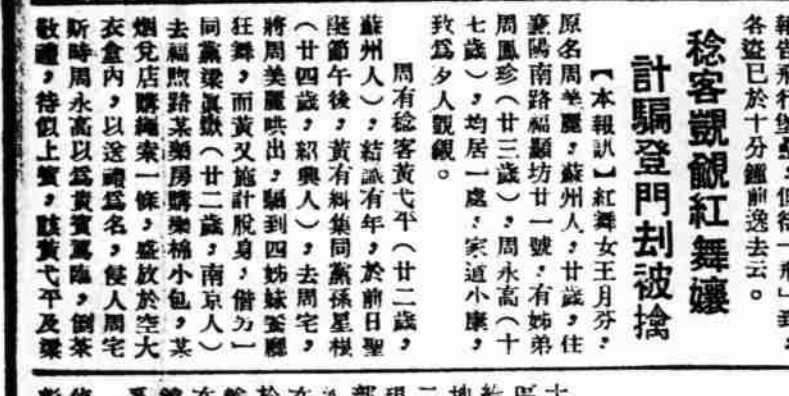 各盜已於十分鐘前逸去云。
稔客覬覦紅舞孃
計騙登門刦被擒
【本報訊】紅舞女王月芬，
原名周美麗，蘇州人，廿歲，住
襄陽南路福顯坊廿一號，有姊弟
周鳳珍（廿三歲），周永高（十
七歲），均居一處，家道小康，
致爲歹人覬覦。
周有稔客黃弋平（廿二歲，
蘇州人），結識有年，於前日聖
誕節午後，黃有糾集同黨孫星根
（廿四歲，紹興人），去周宅，
將周美麗哄出，騙到四姊妹舞廳
狂舞，而黃又施計脫身，偕另一
同黨梁眞嶽（廿二歲，南京人）
去福煦路某藥房購藥棉小包，某
烟兌店購繩索一條，盛放於空大
衣盒內，以送禮爲名，侵入周宅
斯時周永高以爲貴賓蒞臨，倒茶
敬禮，待似上賓，該黃弋平及梁